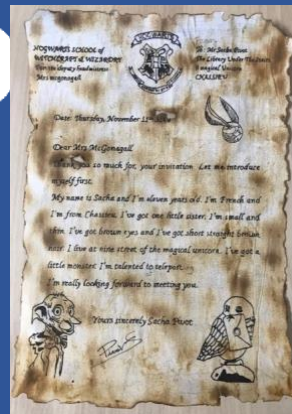 HOGWARTS SCHOOL of
WITCHCRAFT & WIZARDRY
Mrs mcgonagall
To Mr Sacha Pivot
The Library Under The Stairs
CHALUEN
Date: Thursday, November 11th
Dear Mrs McGonagall
Thank you so much for your invitation. Let me introduce
myself first.
My name is Sacha and I'm eleven years old. I'm French and
I'm from Chessira. I've got one little sister. I'm small and
thin. I've got brown eyes and I've got short straight brown
hair. I live at nine street of the magical unicorn. I've got a
little monster. I'm talented to teleport.
I'm really looking forward to meeting you.
Yours sincerely Sacha Pivot